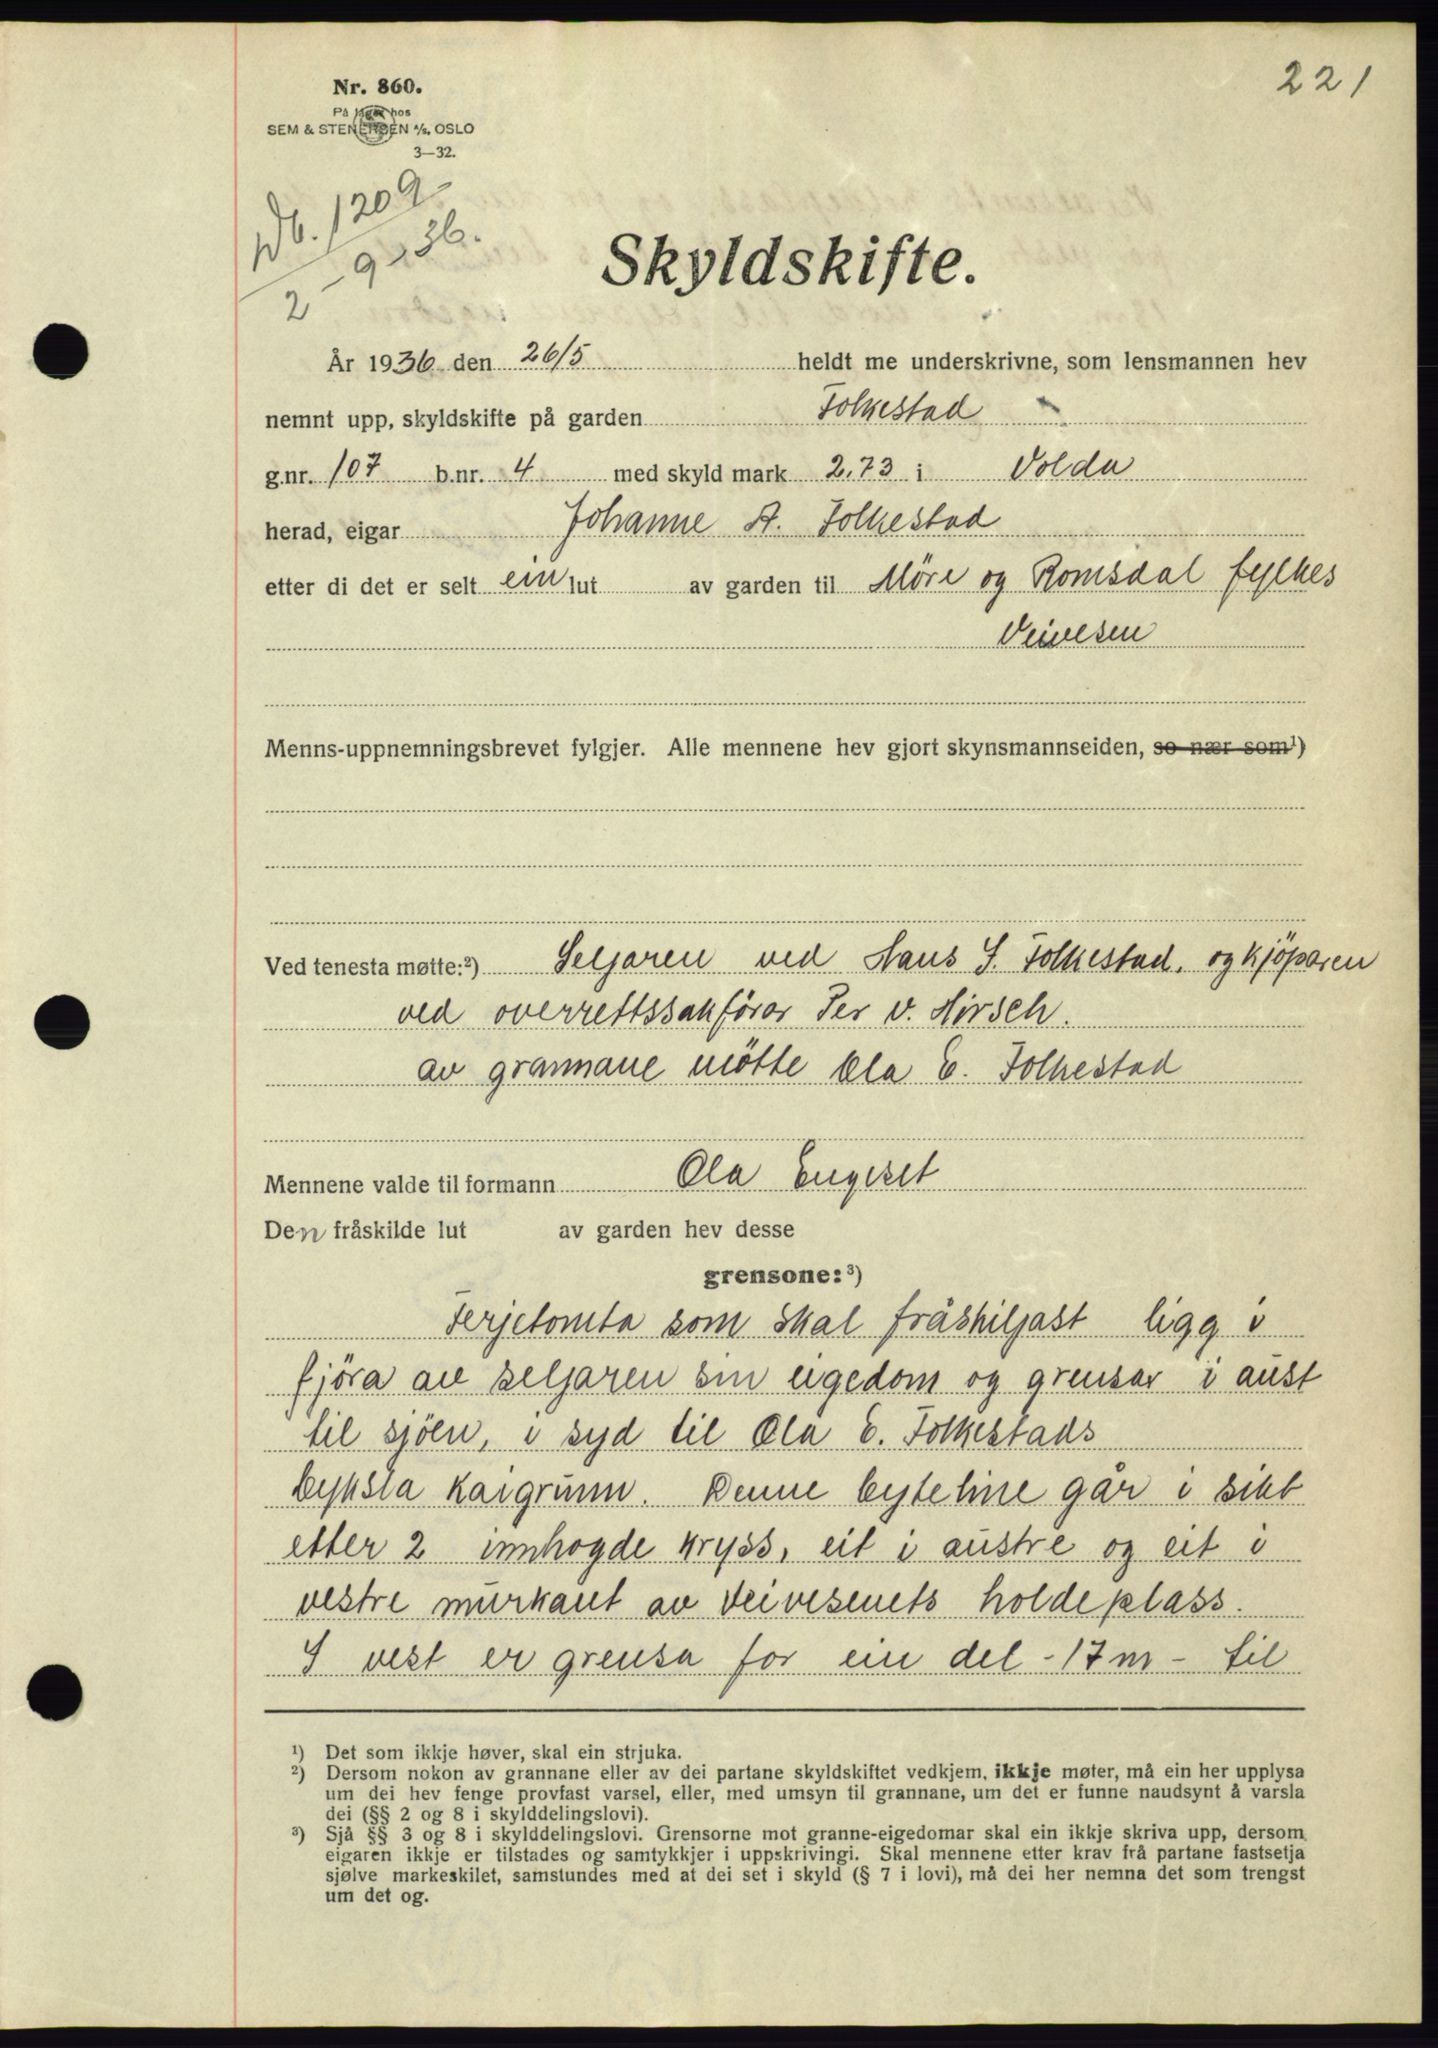 221
Nr. 860.
På lager hos
SEM & STENERSEN A/S. OSLO
3—32.
Db. 1209
2-9-36.
Skyldskifte.
År 1936 den 26/5 heldt me underskrivne, som lensmannen hev
nemnt upp, skyldskifte på garden Folkestad
g.nr. 107 b.nr. 4 med skyld mark 2,73 i Volda
herad, eigar Johanne A. Folkestad
etter di det er selt ein lut av garden til Möre og Romsdal fylkes
Veivesen
Menns-uppnemningsbrevet fylgjer. Alle mennene hev gjort skynsmannseiden, so nær som¹)
Ved tenesta møtte:²) Seljaren ved Hans S. Folkestad, og kjöparen
ved overrettssakförar Per v. Hirsch.
av grannane mötte Ola E. Folkestad
Mennene valde til formann Ola Engeset
Den fråskilde lut av garden hev desse
grensone:³)
Ferjetomta som skal fråskiljast ligg i
fjöra av seljaren sin eigedom og grensar i aust
til sjöen, i syd til Ola E. Folkestads
byksla kaigrunn. Denne byteline går i sikt
etter 2 innhogde kryss, eit i austre og eit i
vestre murkant av Veivesenets holdeplass.
I vest er grensa for ein del - 17 m - til
¹) Det som ikkje høver, skal ein strjuka.
²) Dersom nokon av grannane eller av dei partane skyldskiftet vedkjem, ikkje møter, må ein her upplysa
um dei hev fenge provfast varsel, eller, med umsyn til grannane, um det er funne naudsynt å varsla
dei (§§ 2 og 8 i skylddelingslovi).
³) Sjå §§ 3 og 8 i skylddelingslovi. Grensorne mot granne-eigedomar skal ein ikkje skriva upp, dersom
eigaren ikkje er tilstades og samtykkjer i uppskrivingi. Skal mennene etter krav frå partane fastsetja
sjølve markeskilet, samstundes med at dei set i skyld (§ 7 i lovi), må dei her nemna det som trengst
um det og.